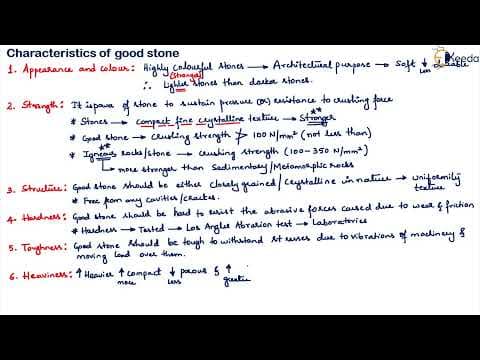 Characteristics of good stone
Keeda
1. Appearance and colour: Highly colourful stones → Architectural purpose → Soft ↓ less durable
(Stronger)
∴ Lighter stones than darker stones.
2. Strength: It is power of stone to sustain pressure (or) resistance to crushing force
* Stones → compact fine crystalline texture → Stronger
* Good stone → Crushing strength ≯ 100 N/mm² (not less than)
* Igneous Rocks/Stone → Crushing strength (100-350 N/mm²)
↳ more stronger than Sedimentary/Metamorphic rocks
3. Structure: Good stone should be either closely grained / Crystalline in nature → uniformity
* Free from any cavities/cracks. texture
4. Hardness: Good stone should be hard to resist the abrasive forces caused due to wear & friction
* Hardness → Tested → Los Angles Abrasion test → Laboratories
5. Toughness: Good stone should be tough to withstand stresses due to vibrations of machinery &
moving load over them.
6. Heaviness: ↑ Heavier ↑ compact ↓ porous & ↑
more less greater